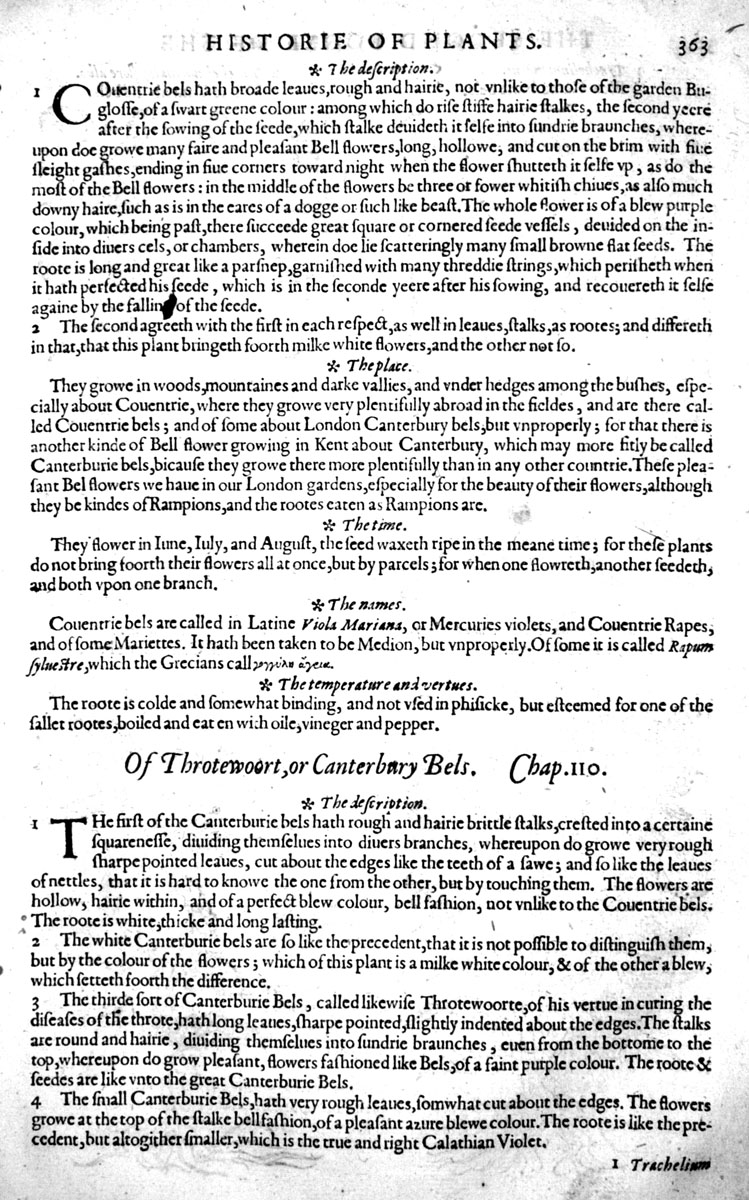 HISTORIE OF PLANTS. 363
✻ The deſcription.
1 COuentrie bels hath broade leaues,rough and hairie, not vnlike to thoſe of the garden Bu-
gloſſe,of a ſwart greene colour : among which do riſe ſtiffe hairie ſtalkes, the ſecond yeere
after the ſowing of the ſeede,which ſtalke deuideth it ſelfe into ſundrie braunches, where-
upon doe growe many faire and pleaſant Bell flowers,long, hollowe, and cut on the brim with fiue
ſleight gaſhes,ending in fiue corners toward night when the flower ſhutteth it ſelfe vp , as do the
moſt of the Bell flowers : in the middle of the flowers be three or fower whitiſh chiues,as alſo much
downy haire,ſuch as is in the eares of a dogge or ſuch like beaſt.The whole flower is of a blew purple
colour, which being paſt,there ſucceede great ſquare or cornered ſeede veſſels , deuided on the in-
ſide into diuers cels, or chambers, wherein doe lie ſcatteringly many ſmall browne flat ſeeds. The
roote is long and great like a parſnep,garniſhed with many threddie ſtrings,which periſheth when
it hath perfected his ſeede , which is in the ſeconde yeere after his ſowing, and recouereth it ſelfe
againe by the fallin of the ſeede.
2 The ſecond agreeth with the firſt in each reſpect,as well in leaues,ſtalks,as rootes; and differeth
in that,that this plant bringeth foorth milke white flowers,and the other not ſo.
✻ The place.
They growe in woods,mountaines and darke vallies, and vnder hedges among the buſhes, eſpe-
cially about Couentrie, where they growe very plentifully abroad in the fieldes , and are there cal-
led Couentrie bels ; and of ſome about London Canterbury bels,but vnproperly ; for that there is
another kinde of Bell flower growing in Kent about Canterbury, which may more fitly be called
Canterburie bels,bicauſe they growe there more plentifully than in any other countrie.Theſe plea-
ſant Bel flowers we haue in our London gardens,eſpecially for the beauty of their flowers,although
they be kindes of Rampions,and the rootes eaten as Rampions are.
✻ The time.
They flower in Iune, Iuly, and Auguſt, the ſeed waxeth ripe in the meane time ; for theſe plants
do not bring foorth their flowers all at once,but by parcels ; for when one flowreth,another ſeedeth,
and both vpon one branch.
✻ The names.
Couentrie bels are called in Latine Viola Mariana, or Mercuries violets, and Couentrie Rapes,
and of ſome Mariettes. It hath been taken to be Medion, but vnproperly.Of ſome it is called Rapum
ſylueſtre,which the Grecians call
✻ The temperature and vertues.
The roote is colde and ſomewhat binding, and not vſed in phiſicke, but eſteemed for one of the
ſallet rootes,boiled and eaten with oile,vineger and pepper.
Of Throtewoort,or Canterbury Bels. Chap.110.
✻ The deſcription.
1 THe firſt of the Canterburie bels hath rough and hairie brittle ſtalks,creſted into a certaine
ſquareneſſe, diuiding themſelues into diuers branches, whereupon do growe very rough
ſharpe pointed leaues, cut about the edges like the teeth of a ſawe ; and ſo like the leaues
of nettles, that it is hard to knowe the one from the other, but by touching them. The flowers are
hollow, hairie within, and of a perfect blew colour, bell faſhion, not vnlike to the Couentrie bels.
The roote is white,thicke and long laſting.
2 The white Canterburie bels are ſo like the precedent,that it is not poſſible to diſtinguiſh them,
but by the colour of the flowers ; which of this plant is a milke white colour, & of the other a blew,
which ſetteth foorth the difference.
3 The thirde ſort of Canterburie Bels , called likewiſe Throtewoorte,of his vertue in curing the
diſeaſes of the throte,hath long leaues,ſharpe pointed,ſlightly indented about the edges.The ſtalks
are round and hairie , diuiding themſelues into ſundrie braunches , euen from the bottome to the
top,whereupon do grow pleaſant, flowers faſhioned like Bels,of a faint purple colour. The roote &
ſeedes are like vnto the great Canterburie Bels.
4 The ſmall Canterburie Bels,hath very rough leaues,ſomwhat cut about the edges. The flowers
growe at the top of the ſtalke bell faſhion,of a pleaſant azure blewe colour. The roote is like the pre-
cedent, but altogither ſmaller,which is the true and right Calathian Violet.
1 Trachelium